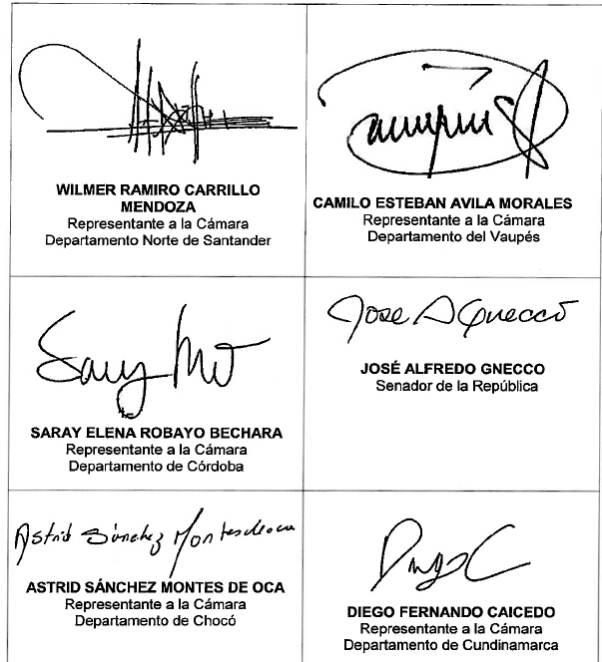 WILMER RAMIRO CARRILLO
MENDOZA
Representante a la Cámara
Departamento Norte de Santander
CAMILO ESTEBAN AVILA MORALES
Representante a la Cámara
Departamento del Vaupés
SARAY ELENA ROBAYO BECHARA
Representante a la Cámara
Departamento de Córdoba
Jose A Gnecco
JOSÉ ALFREDO GNECCO
Senador de la República
Astrid Sánchez Montesdeoca
ASTRID SÁNCHEZ MONTES DE OCA
Representante a la Cámara
Departamento de Chocó
DIEGO FERNANDO CAICEDO
Representante a la Cámara
Departamento de Cundinamarca